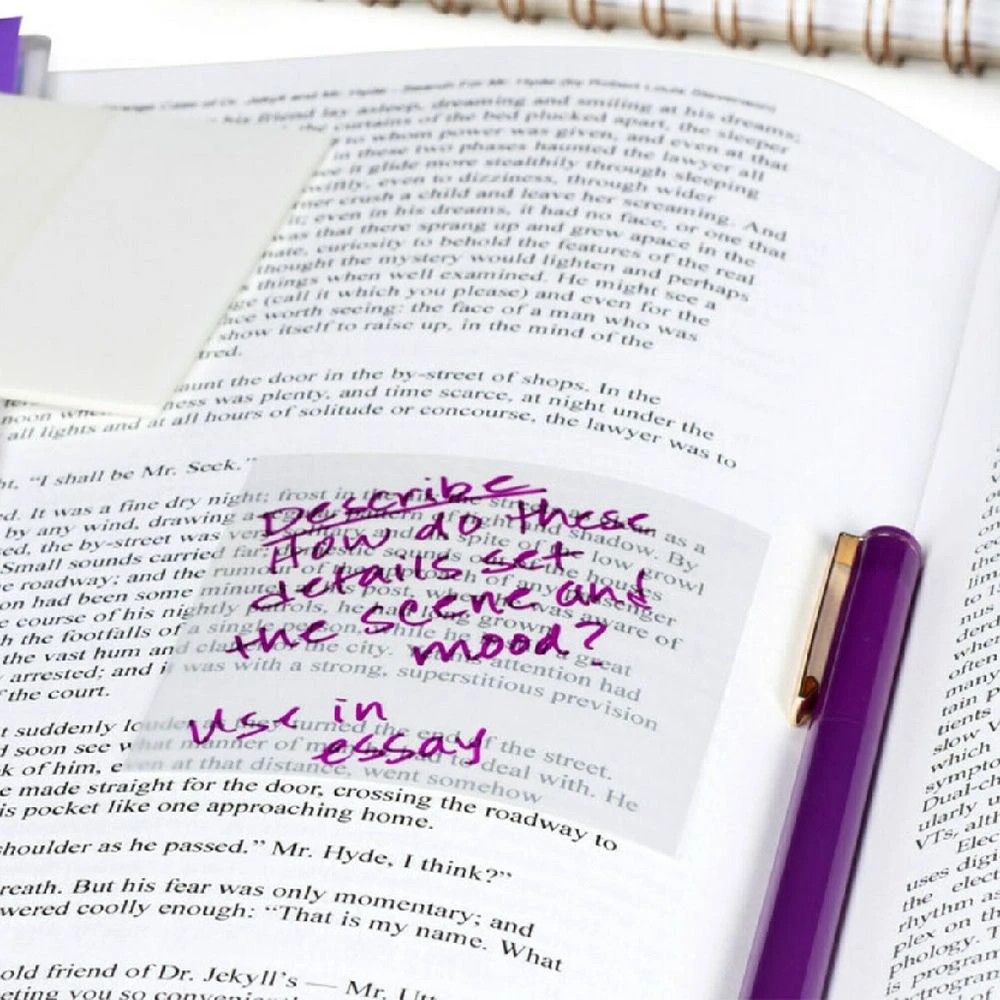 ange Case of Dr. Jekyll and Mr. Hyde - Search For Mr. Hyde (by Robert Louis Stevenson)
his friend lay asleep, dreaming and smiling at his dreams;
the curtains of the bed plucked apart, the sleeper
to whom power was given, and even at that
in these two phases haunted the lawyer all
it glide more stealthily through sleeping
wiftly, even to dizziness, through wider
ner crush a child and leave her screaming. And
it; even in his dreams, it had no face, or one that
was that there sprang up and grew apace in the
nate, curiosity to behold the features of the real
thought the mystery would lighten and perhaps
things when well examined. He might see a
ge (call it which you please) and even for the
ace worth seeing: the face of a man who was
show itself to raise up, in the mind of the
tred.
aunt the door in the by-street of shops. In the
noon when ness was plenty, and time scarce, at night under the
all lights and at all hours of solitude or concourse, the lawyer was to
ht, “I shall be Mr. Seek.”
ed. It was a fine dry night; frost in the
by any wind, drawing a
ed, the by-street was
Small sounds carried far;
e roadway; and the rumour of
on had been some minutes
e course of his nightly patrols, he had
h the footfalls of a single person, while he
the vast hum and clatter of the city.
arrested; and it was with a strong, superstitious prevision
f the court.
Describe
How do these
details set
the scene and
mood?
Use in
essay
t suddenly louder as they turned the end of the street.
d soon see what manner of man he had to deal with. He
k of him, even at that distance, went somehow
e made straight for the door, crossing the roadway to
is pocket like one approaching home.
shoulder as he passed.” Mr. Hyde, I think?”
reath. But his fear was only momentary; and
wered coolly enough: “That is my name. What
old friend of Dr. Jekyll’s — Mr. Utt
eting you so convenient
often
many
tain p
tients
slow V
which
sympto
Dual-ch
ularly u
VTs, alth
Elec
uses digi
the elect
rhythm as
plex on th
phology. T
is program